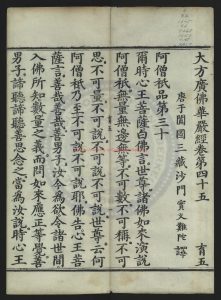 大方廣佛華嚴經卷第四十五　育五
唐于闐國三藏沙門實叉難陀譯
阿僧祇品第三十
爾時心王菩薩白佛言世尊諸佛如來演說
阿僧祇無量無邊無等不可數不可稱不可
思不可量不可說不可說不可說世尊云何
阿僧祇乃至不可說不可說耶佛告心王菩
薩言善哉善哉善男子汝今為欲令諸世間
入佛所知數量之義而問如來應正等覺善
男子諦聽諦聽善思念之當為汝說時心王